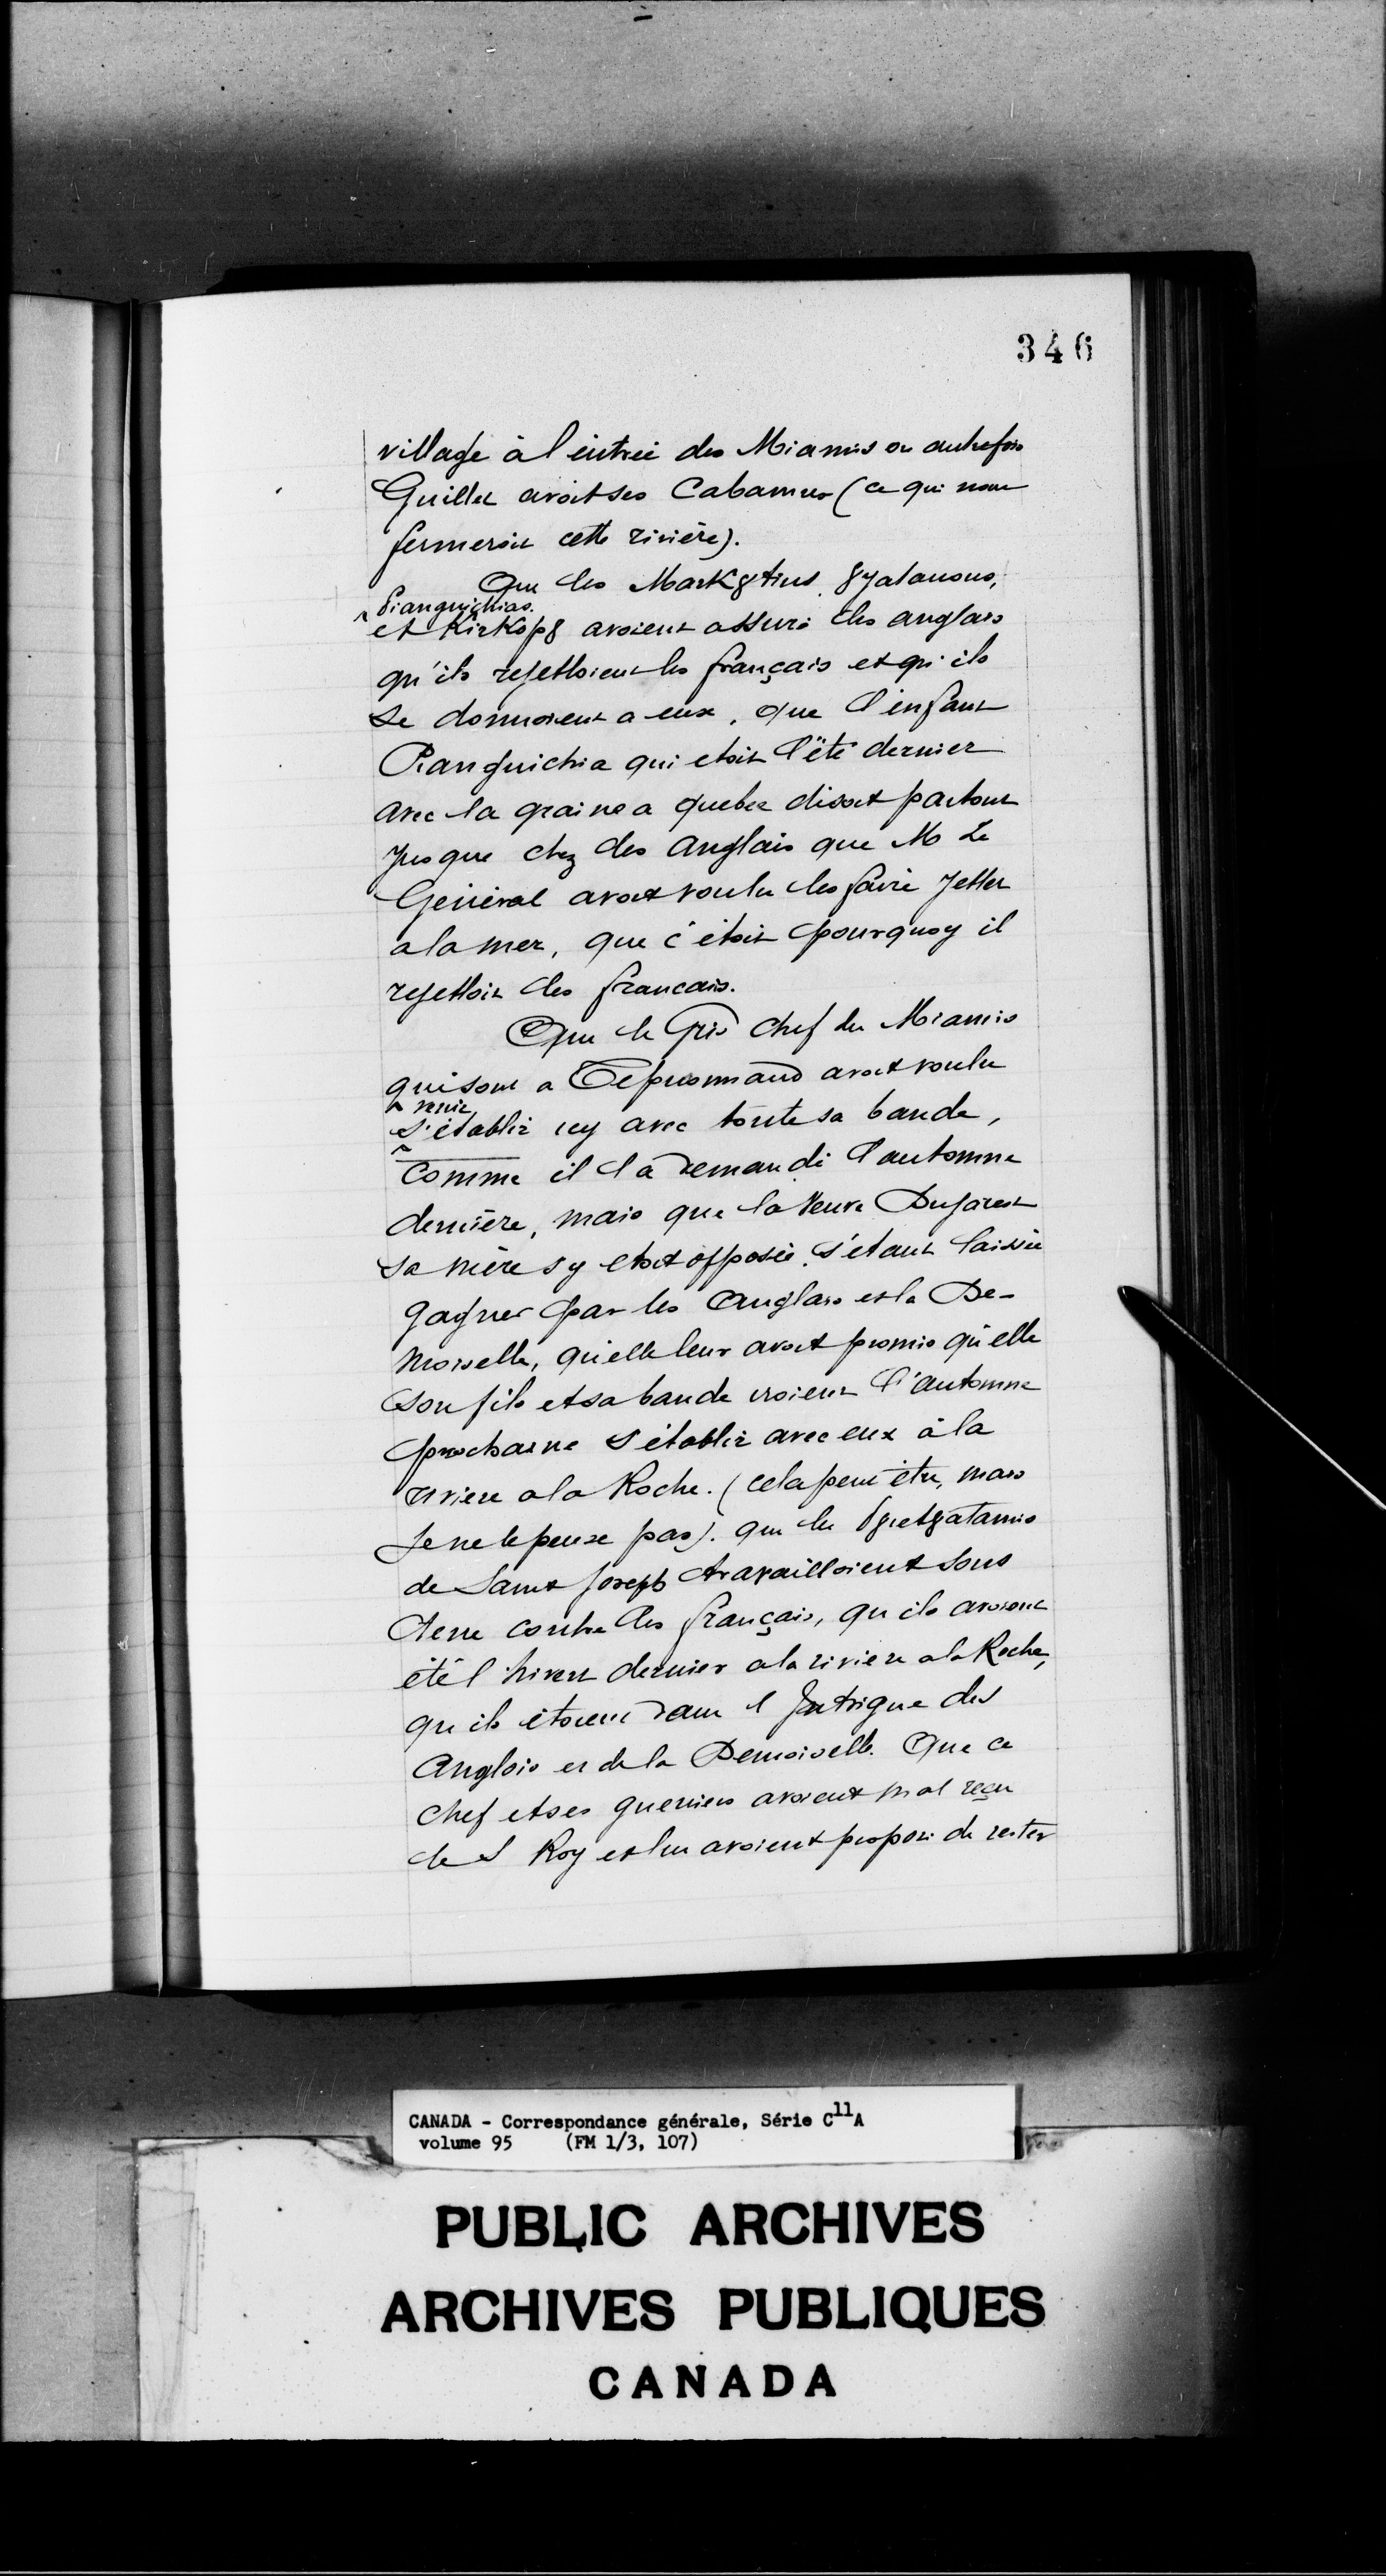 346
village à l'entrée des Miamis ou autrefois
Guillet avoit ses Cabannes (ce qui nous
fermeroit cette rivière).
Que les Mask8tins, 8yatanons,
Pianguichias.
et Kizkop8 avoient assuré les anglais
qu'ils rejettoient les français et qu'ils
se donnoient a eux, que l'enfant
Pianguichia qui etoit l'été dernier
avec la graine a quebec disoit partout
jusque chez les Anglais que M Le
Général avoit voulu les faire jetter
a la mer, que c'étoit pourquoy il
rejettoit les francais.
Que le Gris chef des Miamis
qui sont a avoit voulu
venir
s'établir icy avec toute sa bande,
comme il l'a demandé l'automne
dernière, mais que la Veuve
sa mère s'y etoit opposée, s'étant laissée
gagner par les Anglais et la De-
moiselle, qu'elle leur avoit promis qu'elle
son fils et sa bande iroient l'automne
prochaine s'établir avec eux à la
riviere a la Roche. (cela peut être, mais
Je ne le pense pas). que les
de Saint Joseph travailloient sous
terre contre les français, qu'ils avoient
été l'hiver dernier a la riviere a la Roche,
qu'ils étoient dans l'Intrigue des
Anglois et de la Demoiselle. Que ce
chef et ses guerriers avoient mal reçu
le S Roy et lui avoient proposé de rester
CANADA - Correspondance générale, Série C11A
volume 95 (FM 1/3, 107)
PUBLIC ARCHIVES
ARCHIVES PUBLIQUES
CANADA